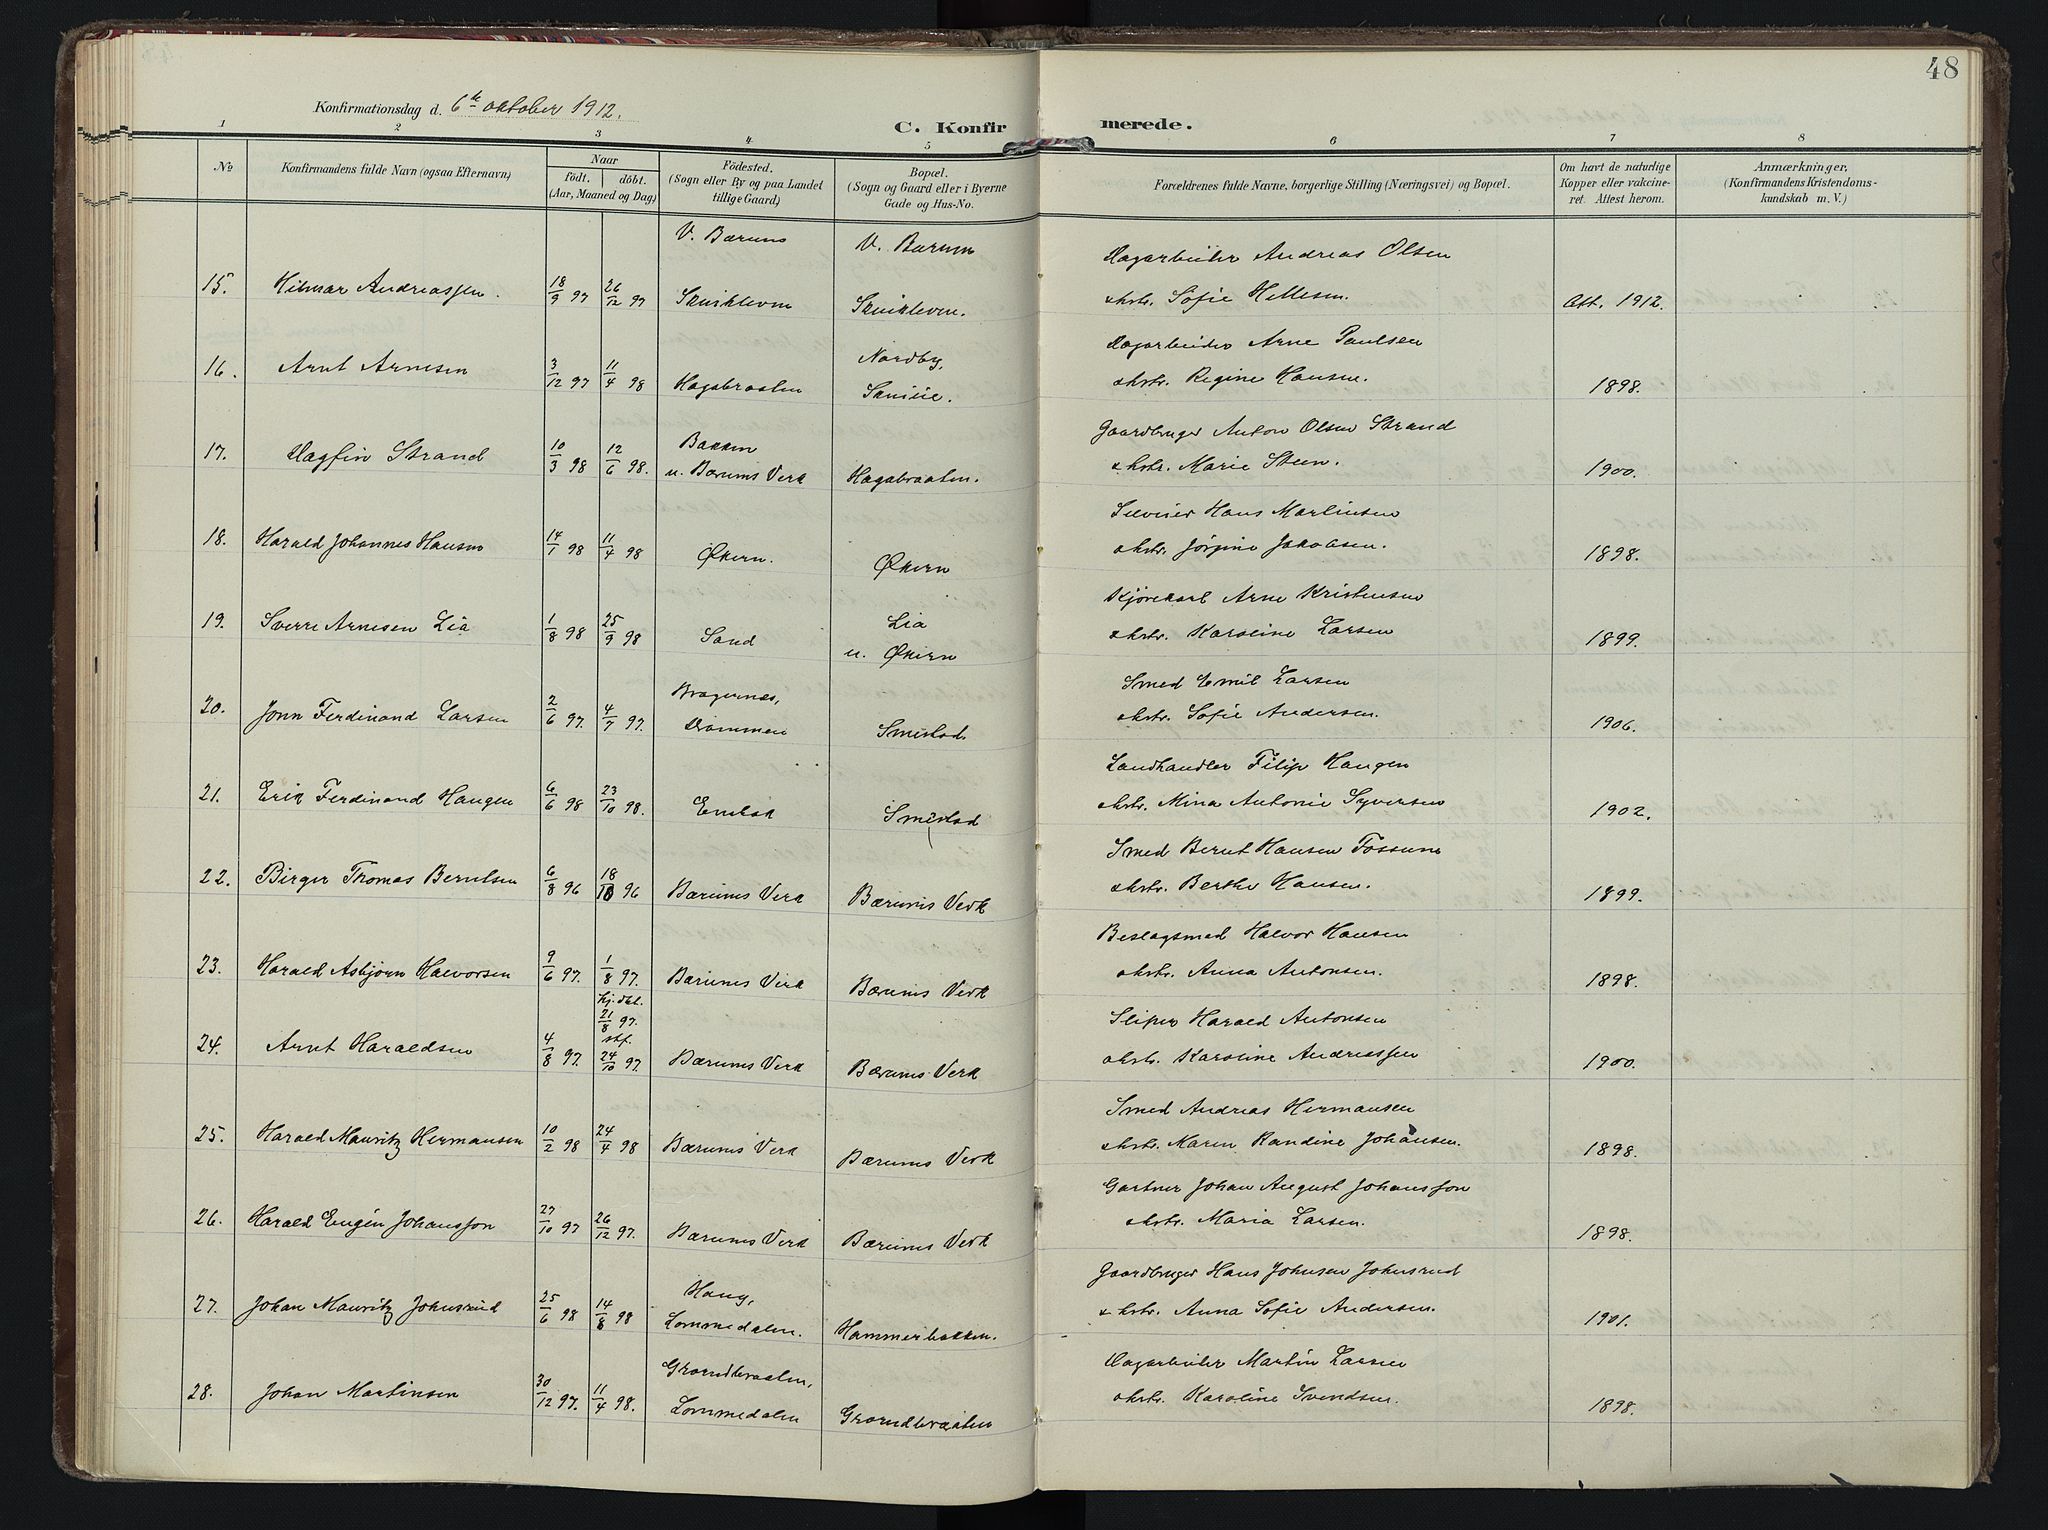 48
Konfirmationsdag d. 6te oktober 1912.
C. Konfirmerede.
1 2 3 4 5 6 7 8
No
Konfirmandens fulde Navn (ogsaa Efternavn)
Naar
födt. döbt.
(Aar, Maaned og Dag)
Födested.
(Sogn eller By og paa Landet
tillige Gaard)
Bopæl.
(Sogn og Gaard eller i Byerne
Gade og Hus-No.
Forældrenes fulde Navne, borgerlige Stilling (Næringsvei) og Bopæl.
Om havt de naturlige
Kopper eller vakcine-
ret. Attest herom.
Anmærkninger,
(Konfirmandens Kristendoms-
kundskab m. V.)
V. Bærum V. Bærum Dagarbeider Andreas Olsen
15. Hilmar Andreassen. 18/9 97 26/12 97 Skuikleven Skuikleven. & hstr. Sofie Hellesen. Att. 1912.
Nordby, Dagarbeider Arne Paulsen
16. Arnt Arnesen 3/12 97 11/4 98 Hagabraaten Skuiie. & hstr. Regine Hansen. 1898.
Bakken Gaardbruger Anton Olsen Strand
17. Dagfin Strand 10/3 98 12/6 98. u. Bærums Verk Hagabraaten. & hstr. Marie Steen. 1900.
Hans Martinsen
18. Harald Johannes Hansen 14/1 98 11/4 98 Økern. Økern & hstr. Jørgine Jakobsen. 1898.
Lia Kjørekarl Arne Kristensen
19. Sverre Arnesen Lia 1/8 98 25/9 98 Sand u. Økern & hstr. Karoline Larsen 1899.
Bragernes, Smed Emil Larsen
20. Jonn Ferdinand Larsen 2/6 97. 4/7 97. Drammen Smestad. & hstr. Sofie Andersen. 1906.
Landhandler Filip Haugen
21. Erik Ferdinand Haugen 6/6 98 23/10 98. Smestad & hstr. Mina Antonie Syversen 1902.
Smed Bernt Hansen Fossum
22. Birger Thomas Berntsen 6/8 96 18/10 96 Bærums Verk Bærums Verk & hstr. Berthe Hansen. 1899.
Beslagsmed Halvor Hansen
23. Harald Asbjørn Halvorsen 9/6 97. 1/8 97. Bærums Verk Bærums Verk & hstr. Anna Antonsen. 1898.
hj. dbt.
21/8 97. Sliper Harald Antonsen
stf.
24. Arnt Haraldsen 4/8 97. 24/10 97. Bærums Verk Bærums Verk & hstr. Karoline Andreassen 1900.
Smed Andreas Hermansen
25. Harald Mauritz Hermansen 10/2 98 24/4 98 Bærums Verk Bærums Verk & hstr. Maren Randine Johansen. 1898.
Gartner Johan August Johansson
26. Harald Eugén Johansson 27/10 97 26/12 97. Bærums Verk Bærums Verk & hstr. Maria Larsen. 1898.
Haug, Gaardbruger Hans Johnsen Johnsrud
27. Johan Mauritz Johnsrud 25/6 98 14/8 98 Lommedalen. Hammerbakken. & hstr. Anna Sofie Andersen. 1901.
Grøndbraaten, Dagarbeider Martin Larsen
28. Johan Martinsen 30/12 97. 11/4 98. Lommedalen Grøndbraaten & hstr. Karoline Svendsen. 1898.